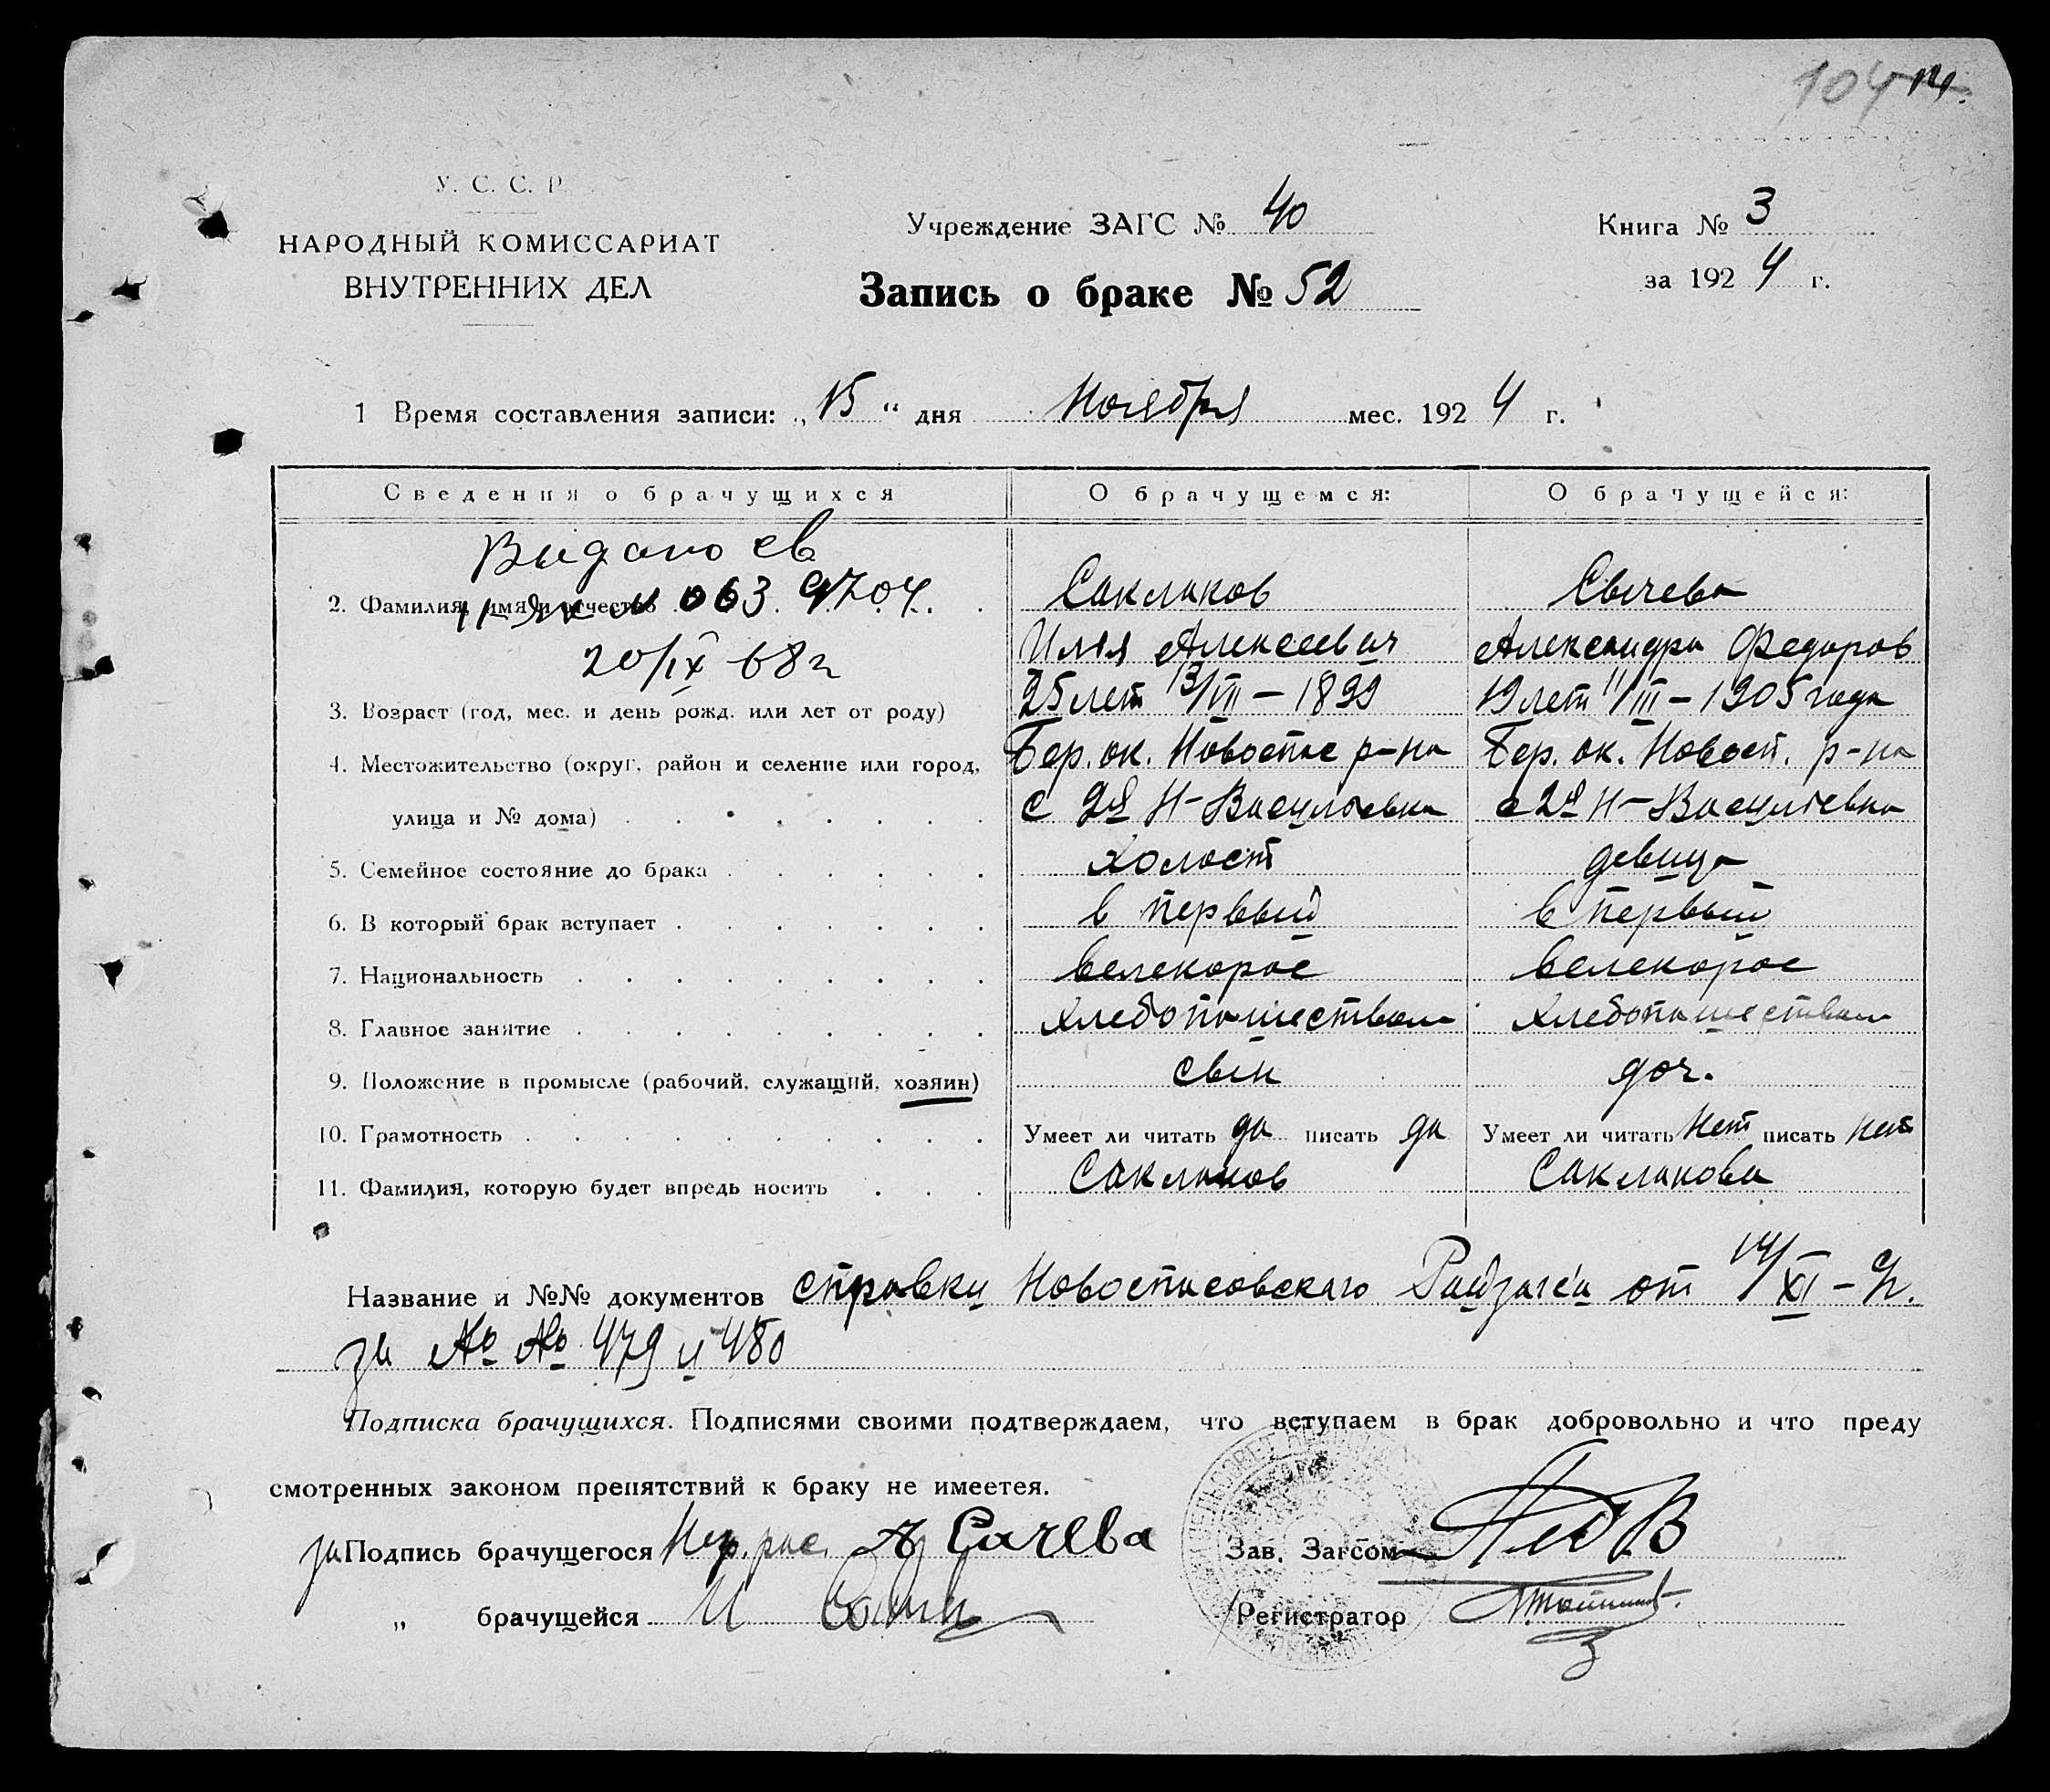 104 14.
У. С. С. Р
НАРОДНЫЙ КОМИССАРИАТ
ВНУТРЕННИХ ДЕЛ
Учреждение ЗАГС № 40
Запись о браке № 52
Книга № 3
за 1924 г.
1 Время составления записи: „15“ дня Ноября мес. 1924 г.
Сведения о брачущихся О брачущемся: О брачущейся:
Выдано св
063 9704.
20/IX 68г
2. Фамилия, имя и отчество Саклаков Сычева
Илья Алексеевич Александра Федоров
3. Возраст (год, мес. и день рожд. или лет от роду) 25 лет 13/VII – 1899 19 лет 11/III – 1905 года
4. Местожительство (округ, район и селение или город, Бер. ок. Новоспас р-на Бер. ок. Новосп. р-на
улица и № дома) с 2я Н-Васильевка с 2я Н-Васильевка
5. Семейное состояние до брака холост девица
6. В который брак вступает в первый в первый
7. Национальность велекорос велекорос
8. Главное занятие хлебопашеством хлебопашеством
9. Положение в промысле (рабочий, служащий, хозяин) сын доч.
10. Грамотность Умеет ли читать да писать да Умеет ли читать Нет писать нет
11. Фамилия, которую будет впредь носить Саклаков Саклакова
Название и №№ документов справки Новоспасовского Райзагса от 14/XI –
за № № 479 и 480
Подписка брачущихся. Подписями своими подтверждаем, что вступаем в брак добровольно и что преду
смотренных законом препятствий к браку не имеетея.
за Подпись брачущегося Нег. рас. А Сачева
„ брачущейся И
Зав. Загсом
Регистратор